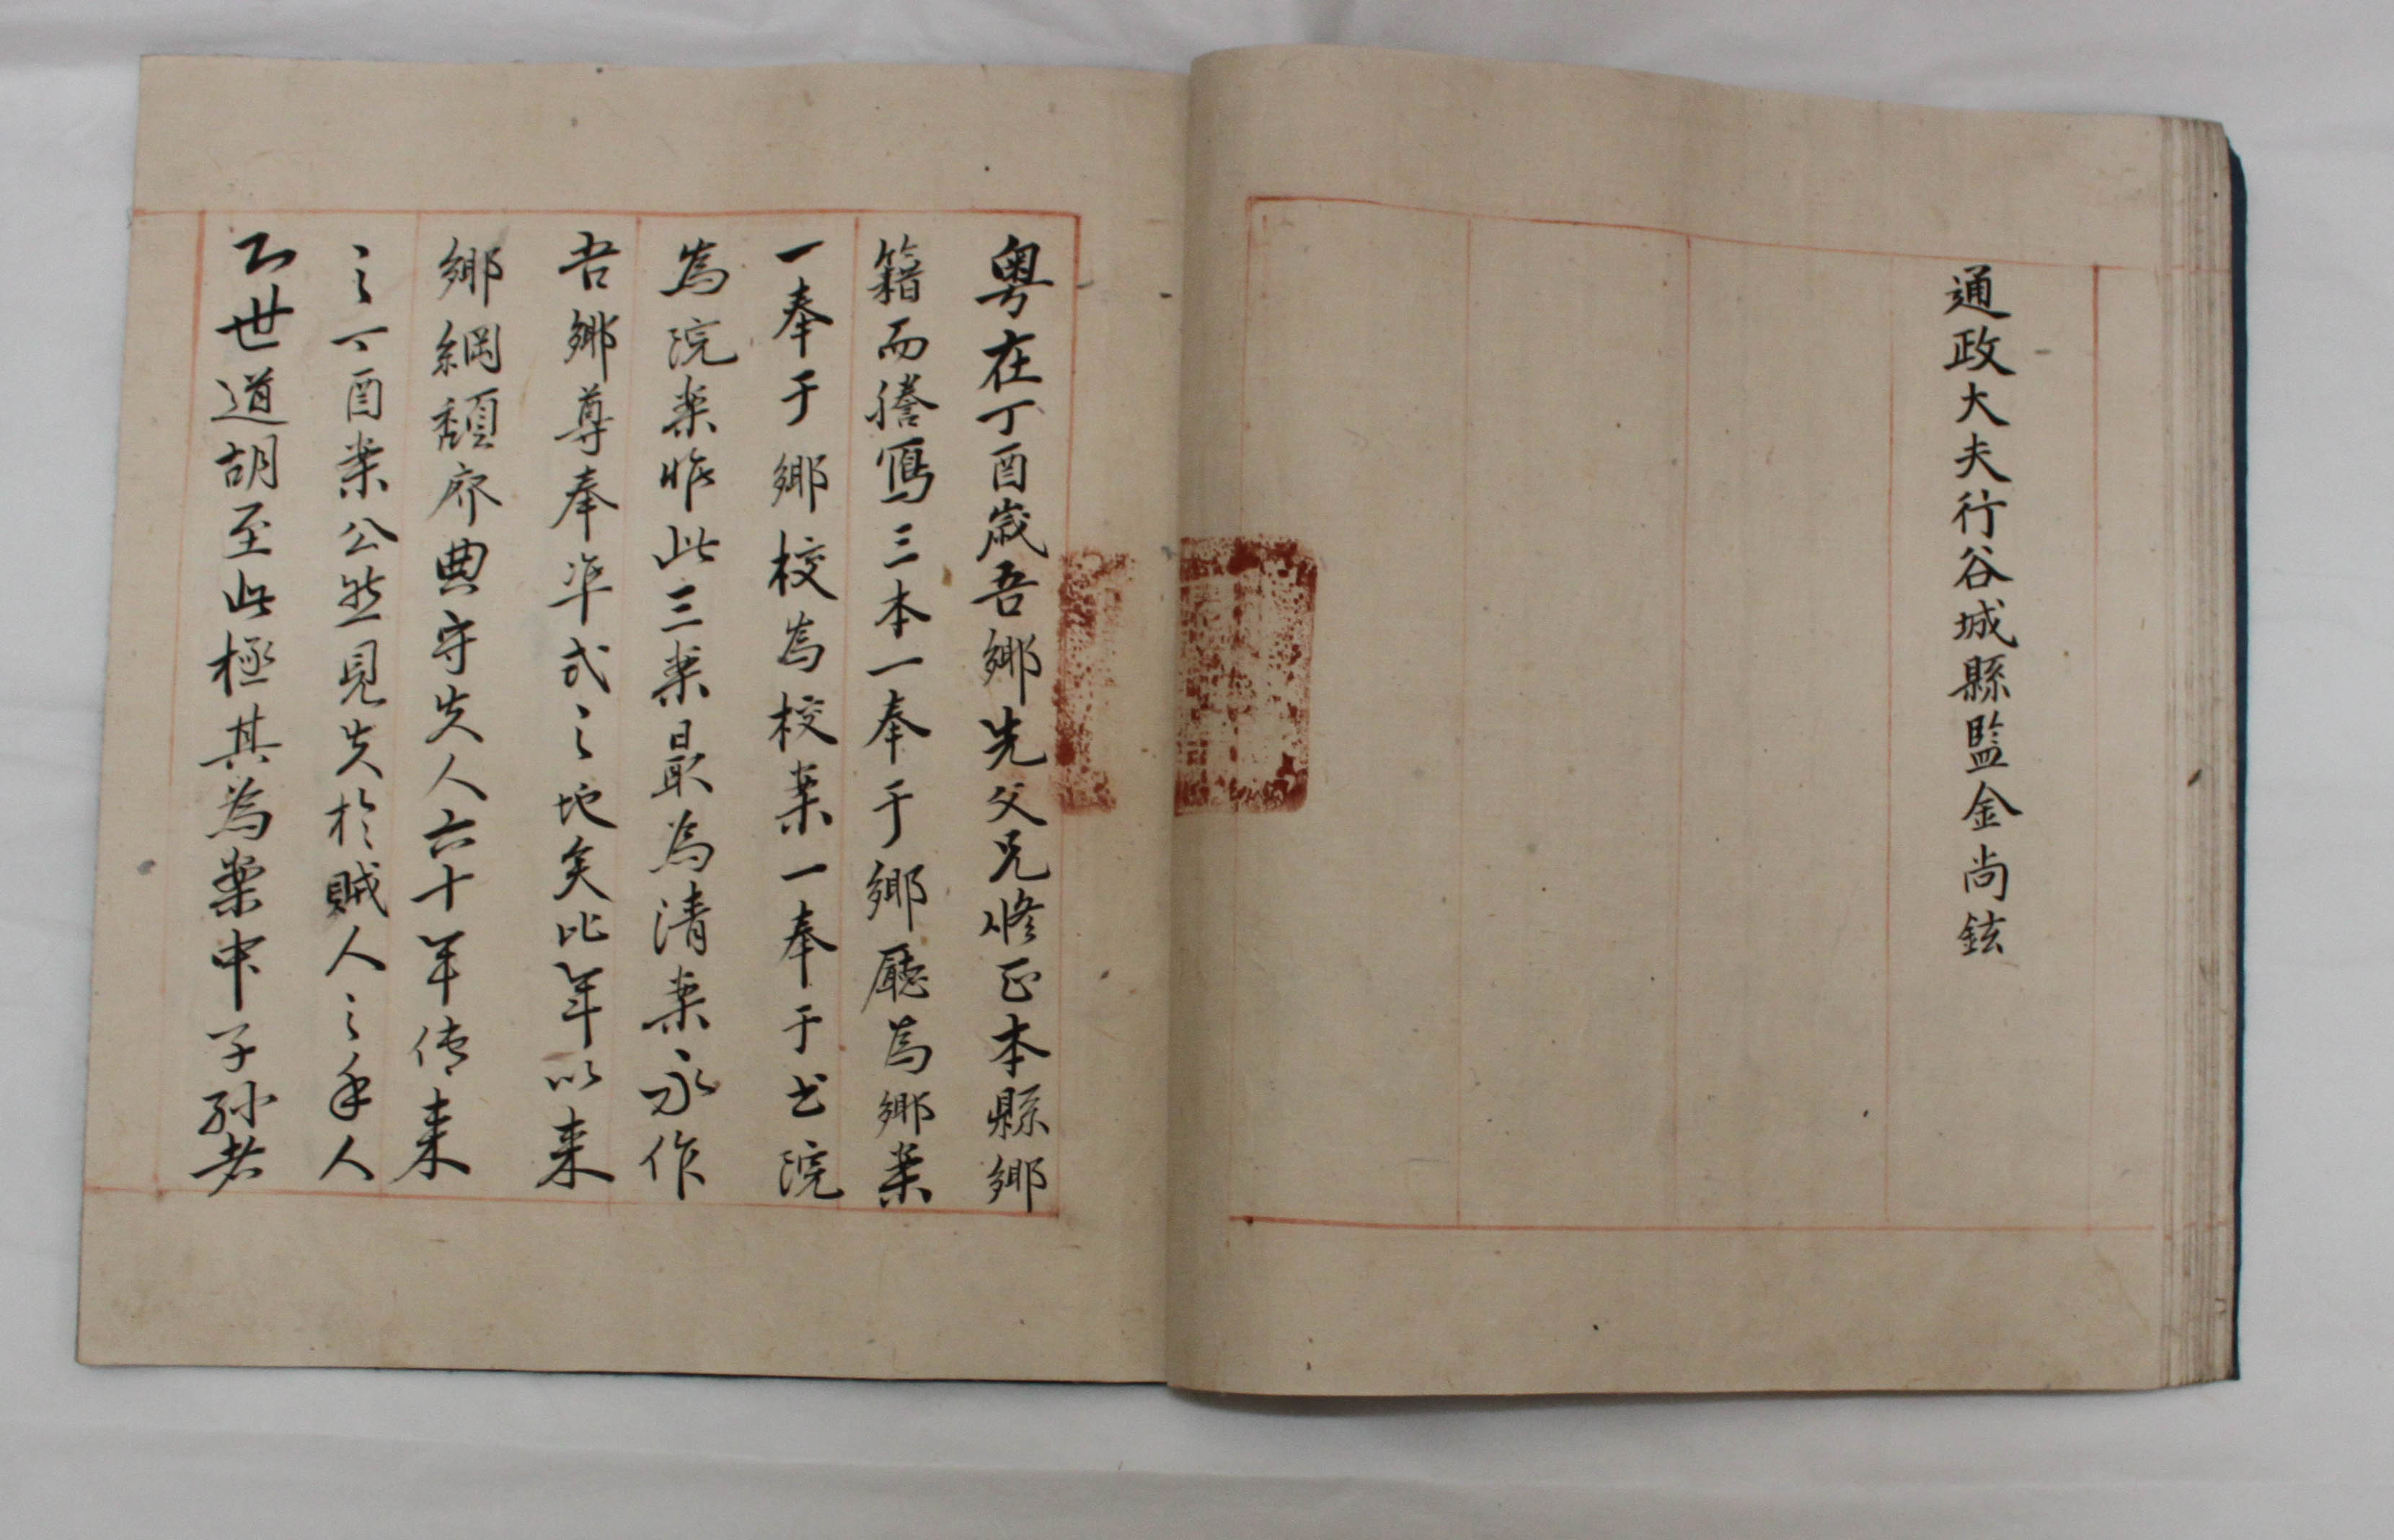 通政大夫行谷城縣監金尚鉉
粤在丁酉歲吾鄉先父兄修正本縣鄉
籍而謄寫三本一奉于鄉廳爲鄉案
一奉于鄉校爲校案一奉于書院
爲院案惟此三案最爲清案永作
吾鄉尊奉準式之地矣比年以来
鄉綱頹廢典守失人六十年傳来
之丁酉案公然見失於賊人之手人
心世道胡至此極其爲案中子孫者